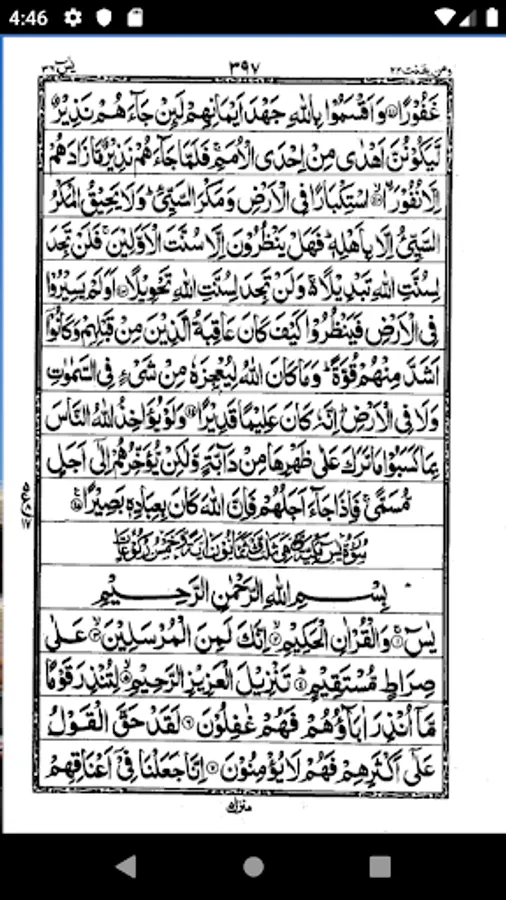 4:46
يٰسٓ ٣٦ ٣٩٧ ومن يقنت ٢٢
غَفُوْرًا ﴿۴۱﴾ وَاَقْسَمُوْا بِاللّٰهِ جَهْدَ اَيْمَانِهِمْ لَىِٕنْ جَآءَهُمْ نَذِيْرٌ
لَّيَكُوْنُنَّ اَهْدٰى مِنْ اِحْدَى الْاُمَمِ ۚ فَلَمَّا جَآءَهُمْ نَذِيْرٌ مَّا زَادَهُمْ
اِلَّا نُفُوْرًا ﴿۴۲﴾ اسْتِكْبَارًا فِى الْاَرْضِ وَمَكْرَ السَّيِّئِ ؕ وَلَا يَحِيْقُ الْمَكْرُ
السَّيِّئُ اِلَّا بِاَهْلِهٖ ؕ فَهَلْ يَنْظُرُوْنَ اِلَّا سُنَّتَ الْاَوَّلِيْنَ ۚ فَلَنْ تَجِدَ
لِسُنَّتِ اللّٰهِ تَبْدِيْلًا ۚ وَلَنْ تَجِدَ لِسُنَّتِ اللّٰهِ تَحْوِيْلًا ﴿۴۳﴾ اَوَلَمْ يَسِيْرُوْا
فِى الْاَرْضِ فَيَنْظُرُوْا كَيْفَ كَانَ عَاقِبَةُ الَّذِيْنَ مِنْ قَبْلِهِمْ وَكَانُوْۤا
اَشَدَّ مِنْهُمْ قُوَّةً ؕ وَمَا كَانَ اللّٰهُ لِيُعْجِزَهٗ مِنْ شَىْءٍ فِى السَّمٰوٰتِ
وَلَا فِى الْاَرْضِ ؕ اِنَّهٗ كَانَ عَلِيْمًا قَدِيْرًا ﴿۴۴﴾ وَلَوْ يُؤَاخِذُ اللّٰهُ النَّاسَ
بِمَا كَسَبُوْا مَا تَرَكَ عَلٰى ظَهْرِهَا مِنْ دَآبَّةٍ وَّلٰكِنْ يُّؤَخِّرُهُمْ اِلٰٓى اَجَلٍ
مُّسَمًّى ۚ فَاِذَا جَآءَ اَجَلُهُمْ فَاِنَّ اللّٰهَ كَانَ بِعِبَادِهٖ بَصِيْرًا ﴿۴۵﴾
بِسْمِ اللّٰهِ الرَّحْمٰنِ الرَّحِيْمِ
يٰسٓ ﴿۱﴾ وَالْقُرْاٰنِ الْحَكِيْمِ ﴿۲﴾ اِنَّكَ لَمِنَ الْمُرْسَلِيْنَ ﴿۳﴾ عَلٰى
صِرَاطٍ مُّسْتَقِيْمٍ ﴿۴﴾ تَنْزِيْلَ الْعَزِيْزِ الرَّحِيْمِ ﴿۵﴾ لِتُنْذِرَ قَوْمًا
مَّاۤ اُنْذِرَ اٰبَآؤُهُمْ فَهُمْ غٰفِلُوْنَ ﴿۶﴾ لَقَدْ حَقَّ الْقَوْلُ
عَلٰٓى اَكْثَرِهِمْ فَهُمْ لَا يُؤْمِنُوْنَ ﴿۷﴾ اِنَّا جَعَلْنَا فِىْۤ اَعْنَاقِهِمْ
منزل ۵